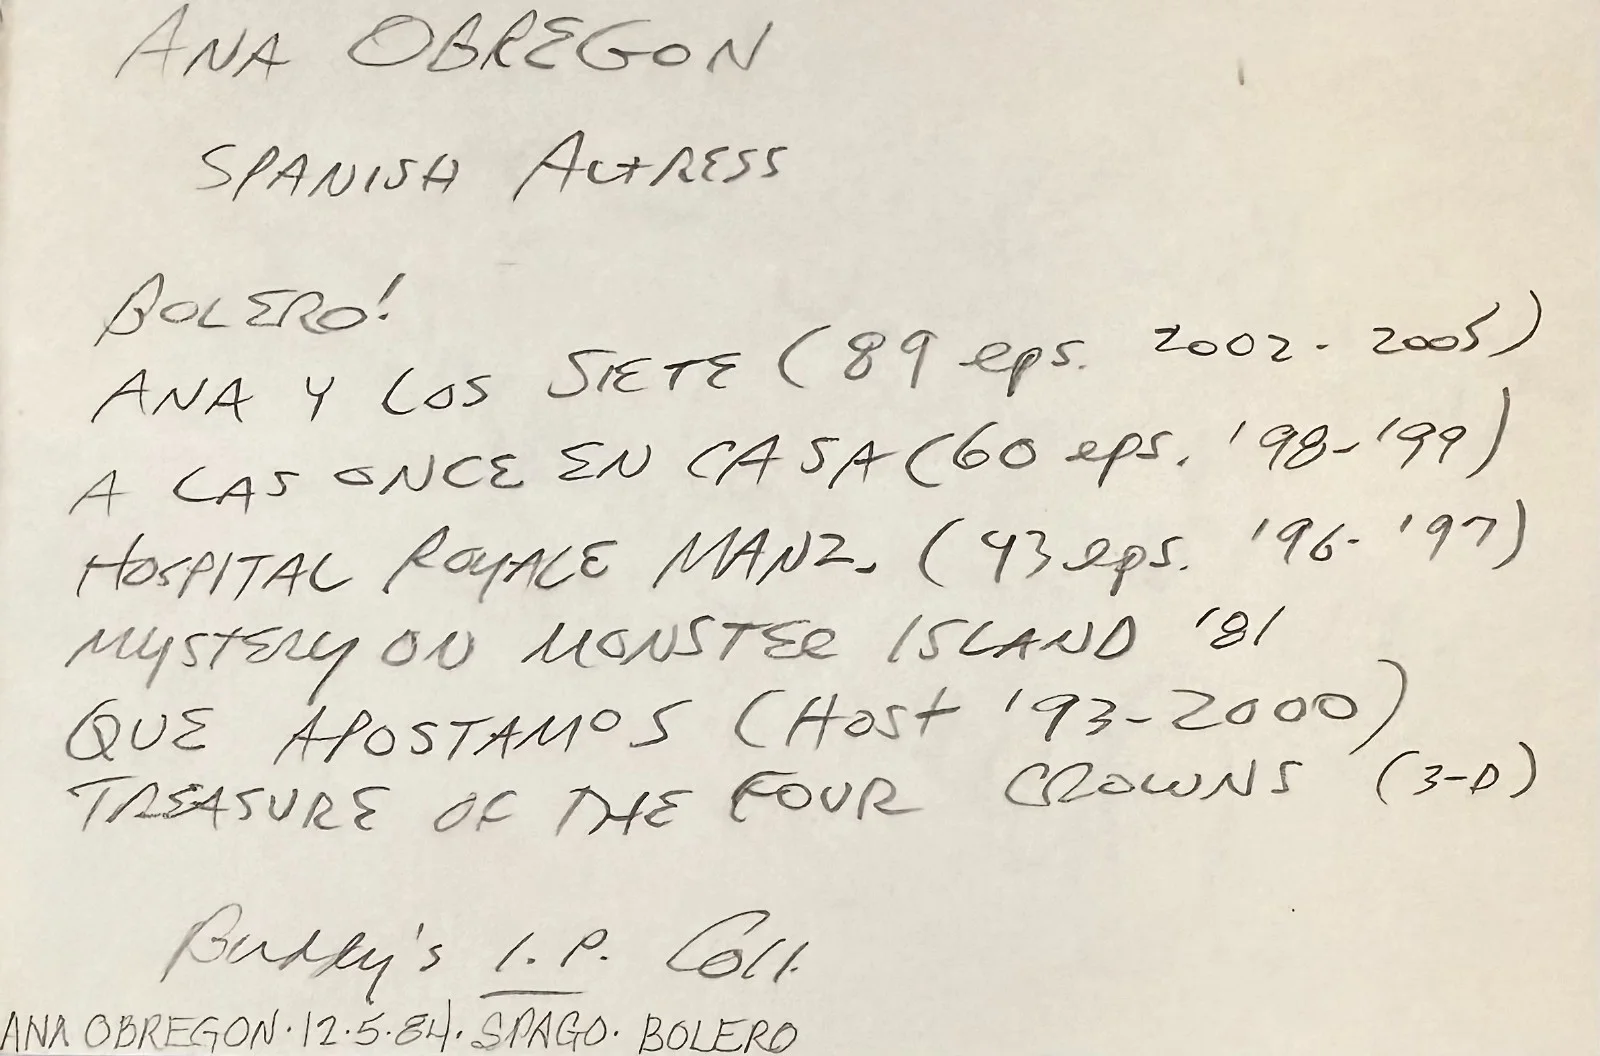 ANA OBREGON
SPANISH ACTRESS
BOLERO!
ANA Y LOS SIETE (89 eps. 2002-2005)
A LAS ONCE EN CASA (60 eps. '98-'99)
HOSPITAL ROYALE MANZ. (43 eps. '96-'97)
MYSTERY ON MONSTER ISLAND '81
QUE APOSTAMOS (HOST '93-2000)
TREASURE OF THE FOUR CROWNS (3-D)
Buddy's I.P. Coll.
ANA OBREGON·12·5·84·SPAGO·BOLERO